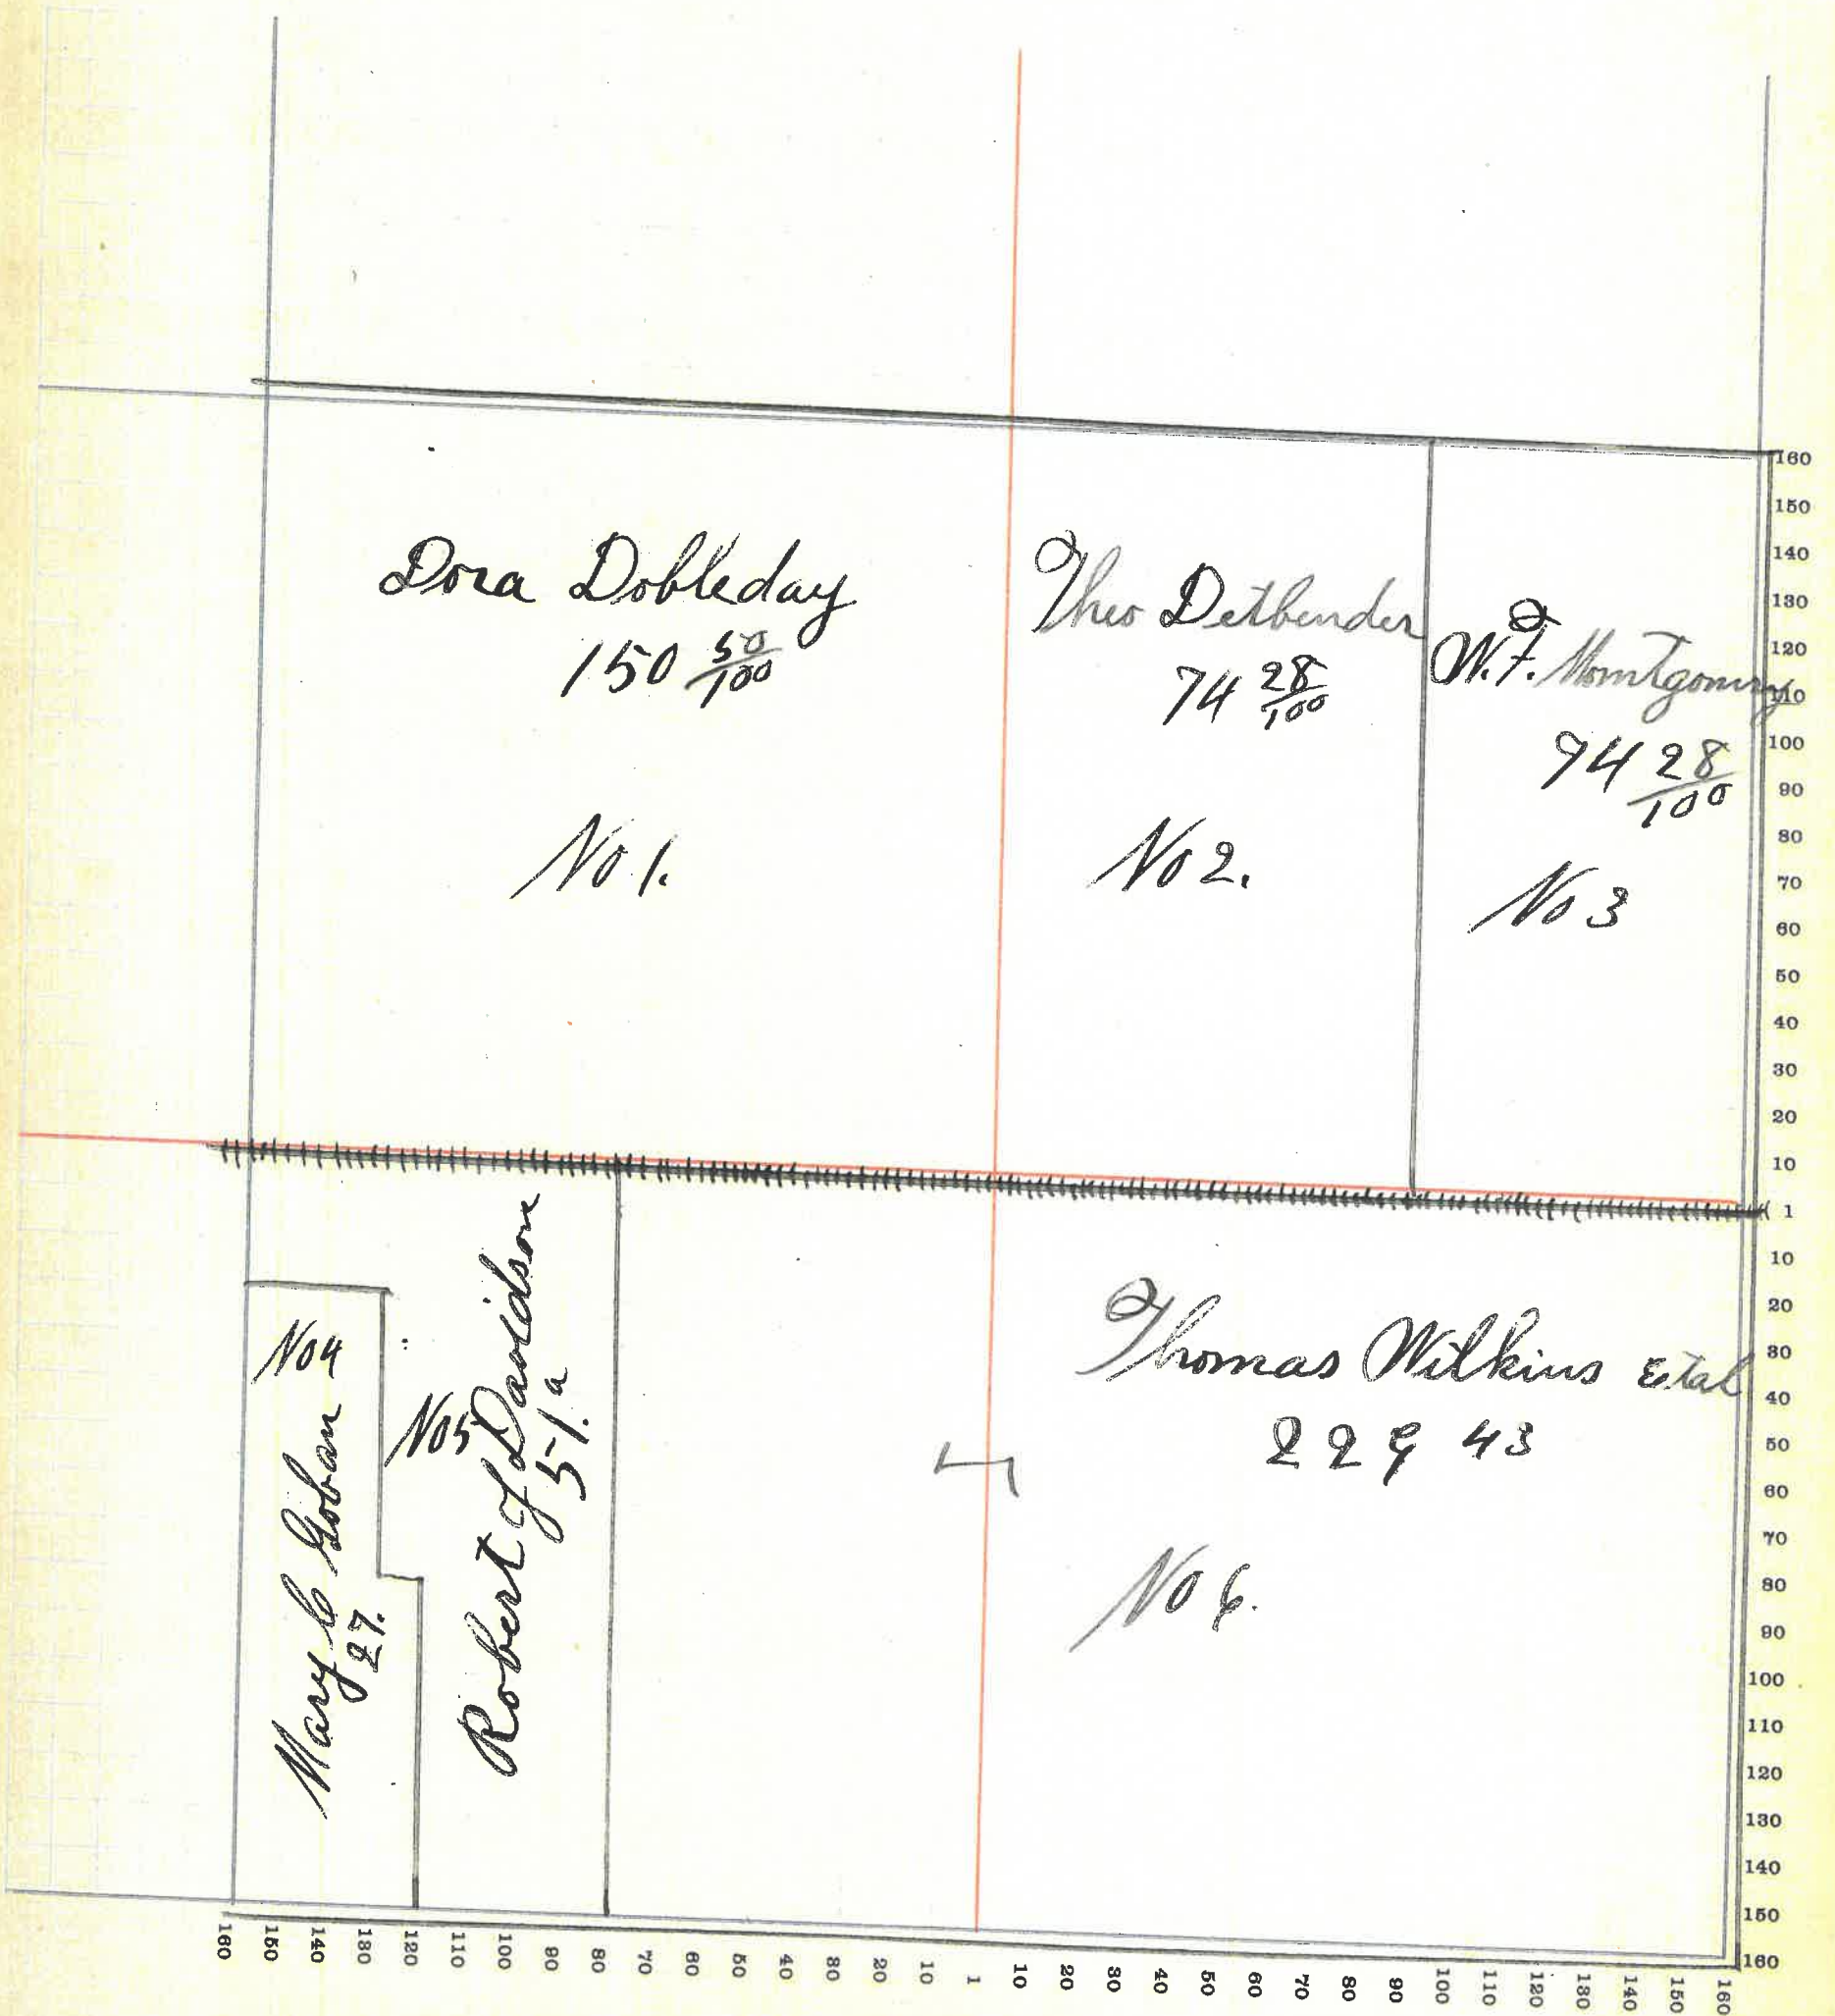 Dora Dobleday
150 50/100
No 1.
Theo Detbender
74 28/100
No 2.
W. F. Montgomry
74 28/100
No 3
No 4
Mary C Goban
27.
No 5
Robert J Davidson
51. a
Thomas Wilkins Etal
229 43
No 6.
160
150
140
130
120
110
100
90
80
70
60
50
40
30
20
10
1
10
20
30
40
50
60
70
80
90
100
110
120
130
140
150
160
160 150 140 130 120 110 100 90 80 70 60 50 40 30 20 10 1 10 20 30 40 50 60 70 80 90 100 110 120 130 140 150 160